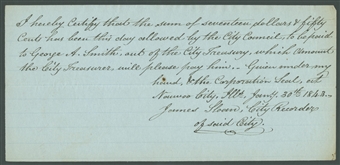 I hereby Certify that the sum of seventeen dollars & fifty
Cents has been this day allowed by the City Council, to be paid
to George A. Smith, out of the City Treasury, which amount
the City Treasurer, will please pay him. Given under my
hand, & the Corporation Seal, at
Nauvoo City, Ills, Jany. 30th 1843.
James Sloan, City Recorder
of said City.